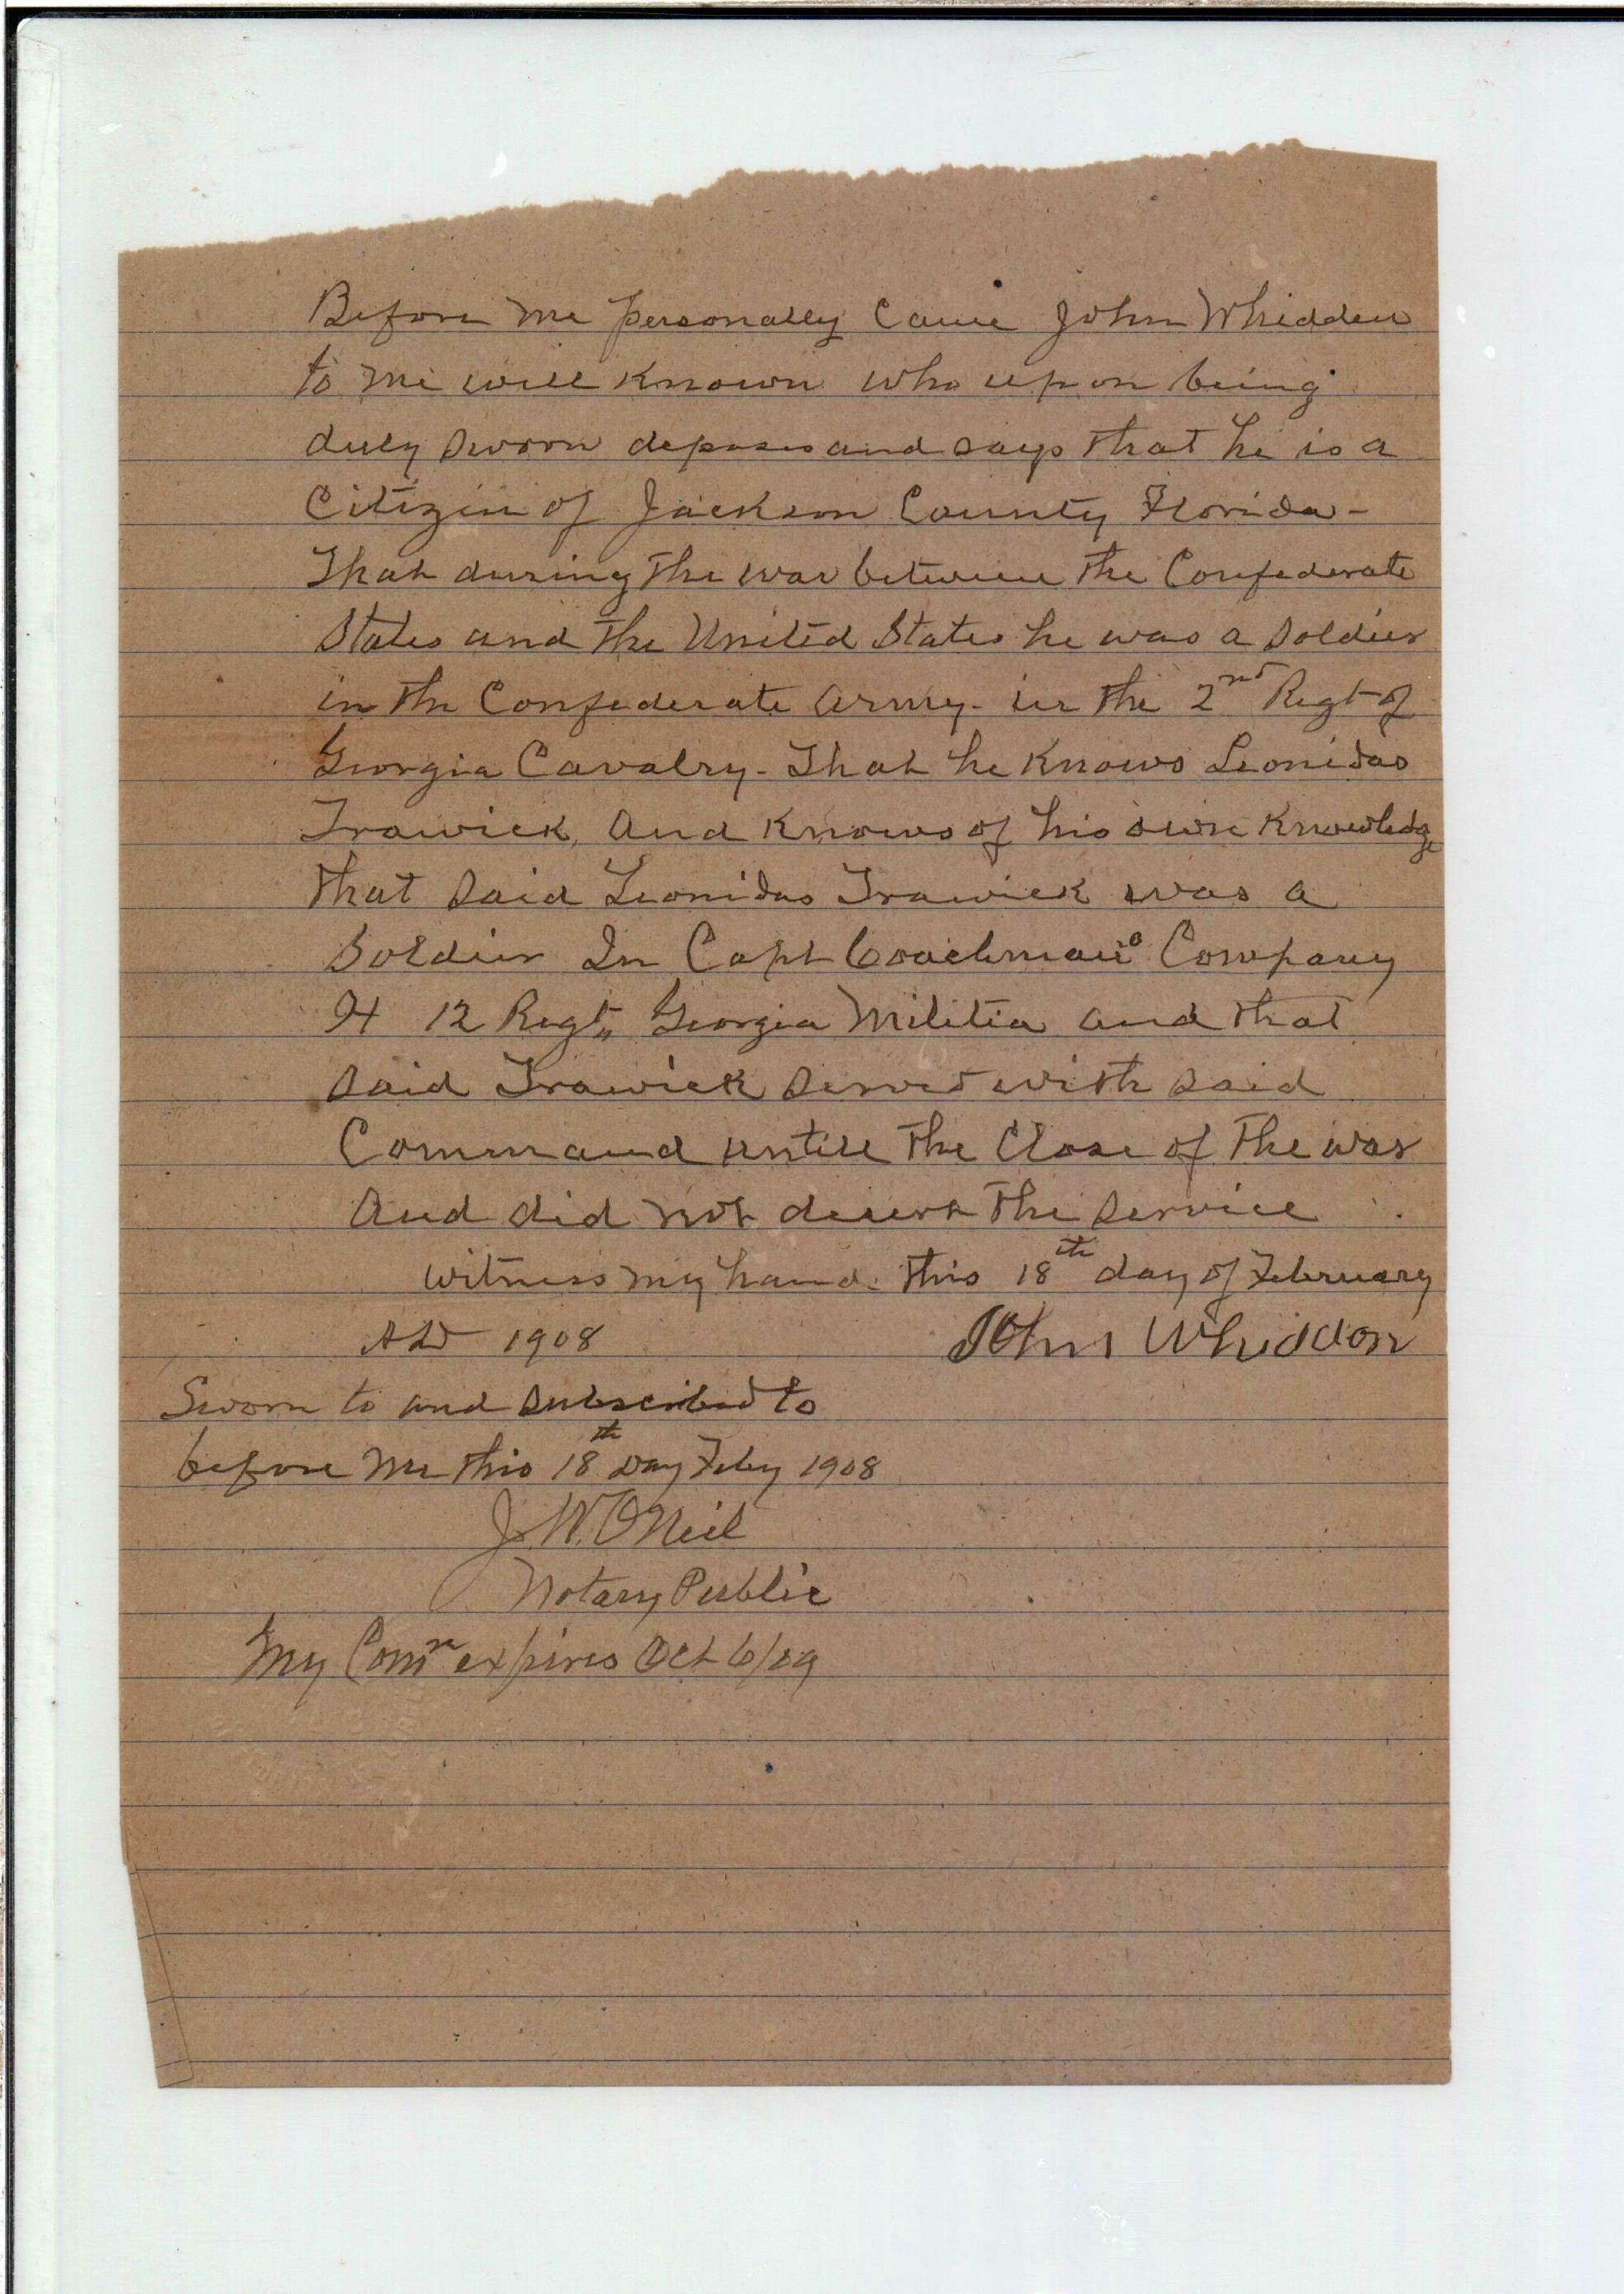 Before me personally came John Whidden
to me well known who upon being
duly sworn deposes and says that he is a
Citizen of Jackson County Florida -
That during the war between the Confederate
States and the United States he was a soldier
in the Confederate army - in the 2nd Regt of
Georgia Cavalry - That he knows Leonidas
Trawick, and knows of his own knowledge
that said Leonidas Trawick was a
Soldier In Capt Coachman's Company
H 12 Regt,, Georgia Militia and that
said Trawick served with said
Command untill the Close of the war
and did not desert the service
witness my hand this 18th day of February
AD 1908 John Whiddon
Sworn to and subscribed to
before me this 18th Day Feby 1908
J. W. O Neil
Notary Public
My Comn expires Oct 6/09